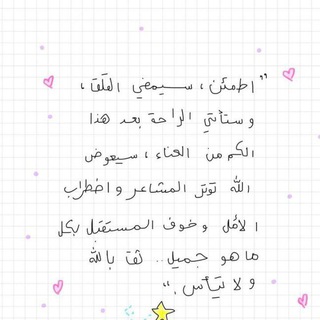 "اطمئن، سيمضي القلق،
وستأتي الراحة بعد هذا
الكم من العناء، سيعوض
الله توتر المشاعر واضطراب
الأمل وخوف المستقبل بكل
ما هو جميل.. ثق بالله
ولا تيأس."